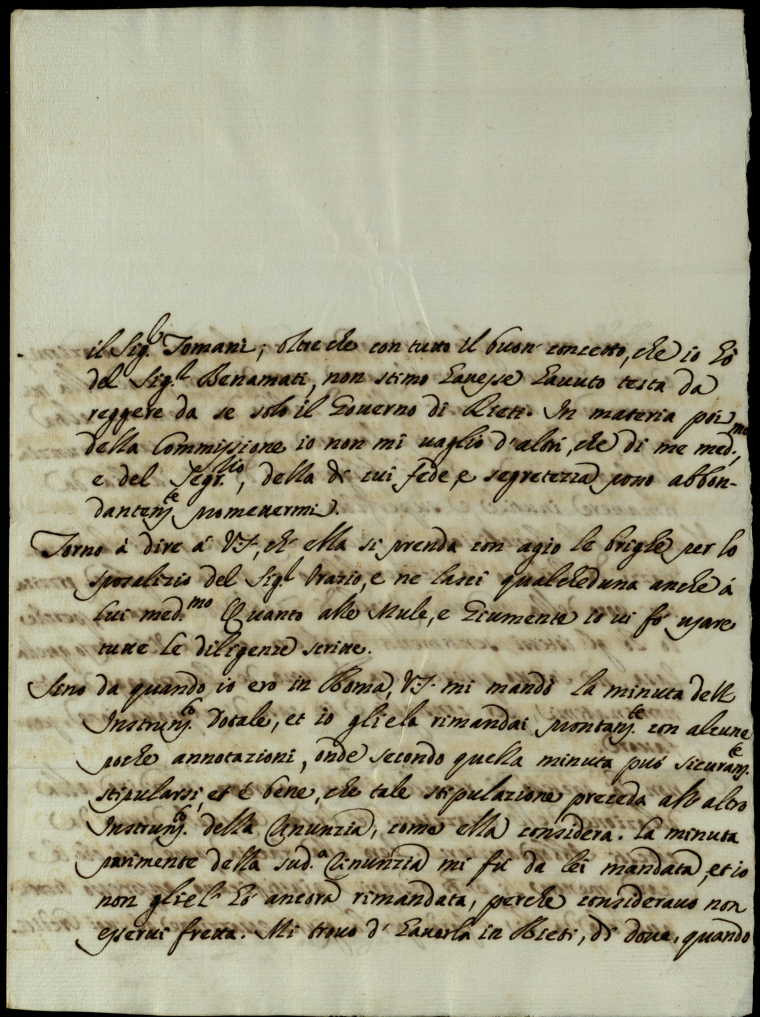 il Sig.r Tomani; oltre che con tutto il buon concetto, che io hò
del Sig.r Benamati, non stimo havesse havuto testa da
reggere da se solo il Governo di Rieti. In materia poi
della Commissione io non mi vaglio d'altri, che di me med.mo,
e del Segr.rio, della di cui fede, e segretezza posso abbon-
dantem.te promettermi.
Torno à dire à VS, ch' ella si prenda con agio le brighe per lo
sposalizio del Sig.r Orazio, e ne lasci qualcheduna anche à
lui med.mo Quanto alle Mule, e Giumente io vi fò usare
tutte le diligenze
Sino da quando io ero in Roma, VS. mi mandò la minuta dell'
Instrum.to Dotale, et io gliela rimandai prontam.te con alcune
poche annotazioni, onde secondo quella minuta può sicuram.te
stipularsi, et è bene, che tale stipulazione preceda all'altro
Instrum.to della Rinunzia, come ella considera. La minuta
parimente della sud.a Rinunzia mi fù da lei mandata, et io
non gliel' hò ancora rimandata, perche consideravo non
esservi fretta. Mi trovo d' haverla in Rieti, di dove, quando